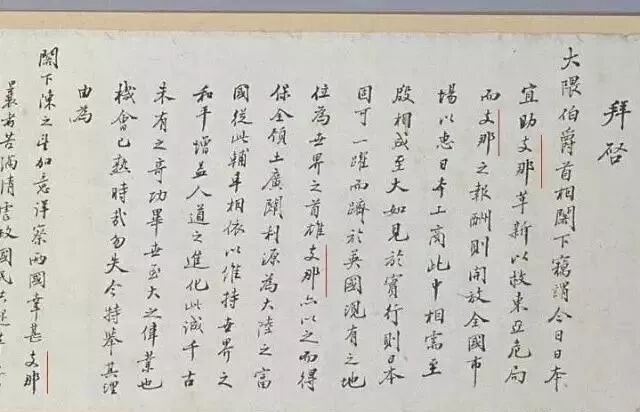 拜啓
大隈伯爵首相閣下竊謂今日日本
宜助支那革新以救東亞危局
而支那之報酬則開放全國市
場以惠日本工商此中相需至
殷相成至大如見於實行則日本
固可一躍而躋於英國現有之地
位為世界之首雄支那亦以之而得
保全領土廣闢利源為大陸之富
國從此輔車相依以維持世界之
和平增益人道之進化此誠千古
未有之奇功畢世至大之偉業也
機會已熟時哉勿失今特舉其理
由為
閣下陳之望加意詳察兩國幸甚支那
曩者苦滿清虐政國民